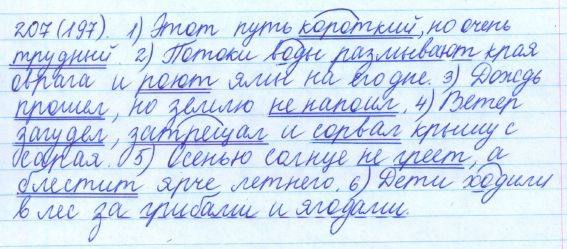 207(197). 1) Этот путь короткий, но очень
трудный. 2) Потоки воды размывают края
оврага и роют ямы на его дне. 3) Дождь
прошел, но землю не напоил. 4) Ветер
загудел, затрещал и сорвал крышу с
сарая. 5) Осенью солнце не греет, а
блестит ярче летнего. 6) Дети ходили
в лес за грибами и ягодами.